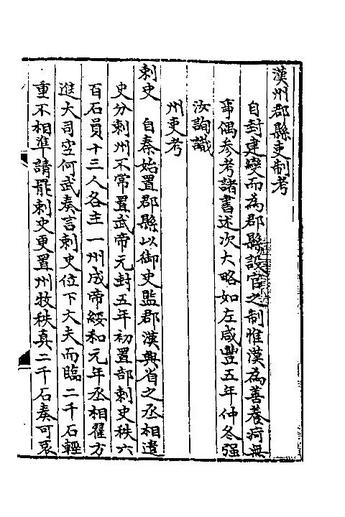 漢州郡縣吏制考
自封建變而為郡縣設官之制惟漢為善養疴無
事偶參考諸書述次大略如左咸豐五年仲冬強
汝詢識
州吏考
刺史　自秦始置郡縣以御史監郡漢興省之丞相遣
史分刺州不常置武帝元封五年初置部刺史秩六
百石員十三人各主一州成帝綏和元年丞相翟方
進大司空何武奏言刺史位下大夫而臨二千石輕
重不相準請罷刺史更置州牧秩真二千石奏可哀